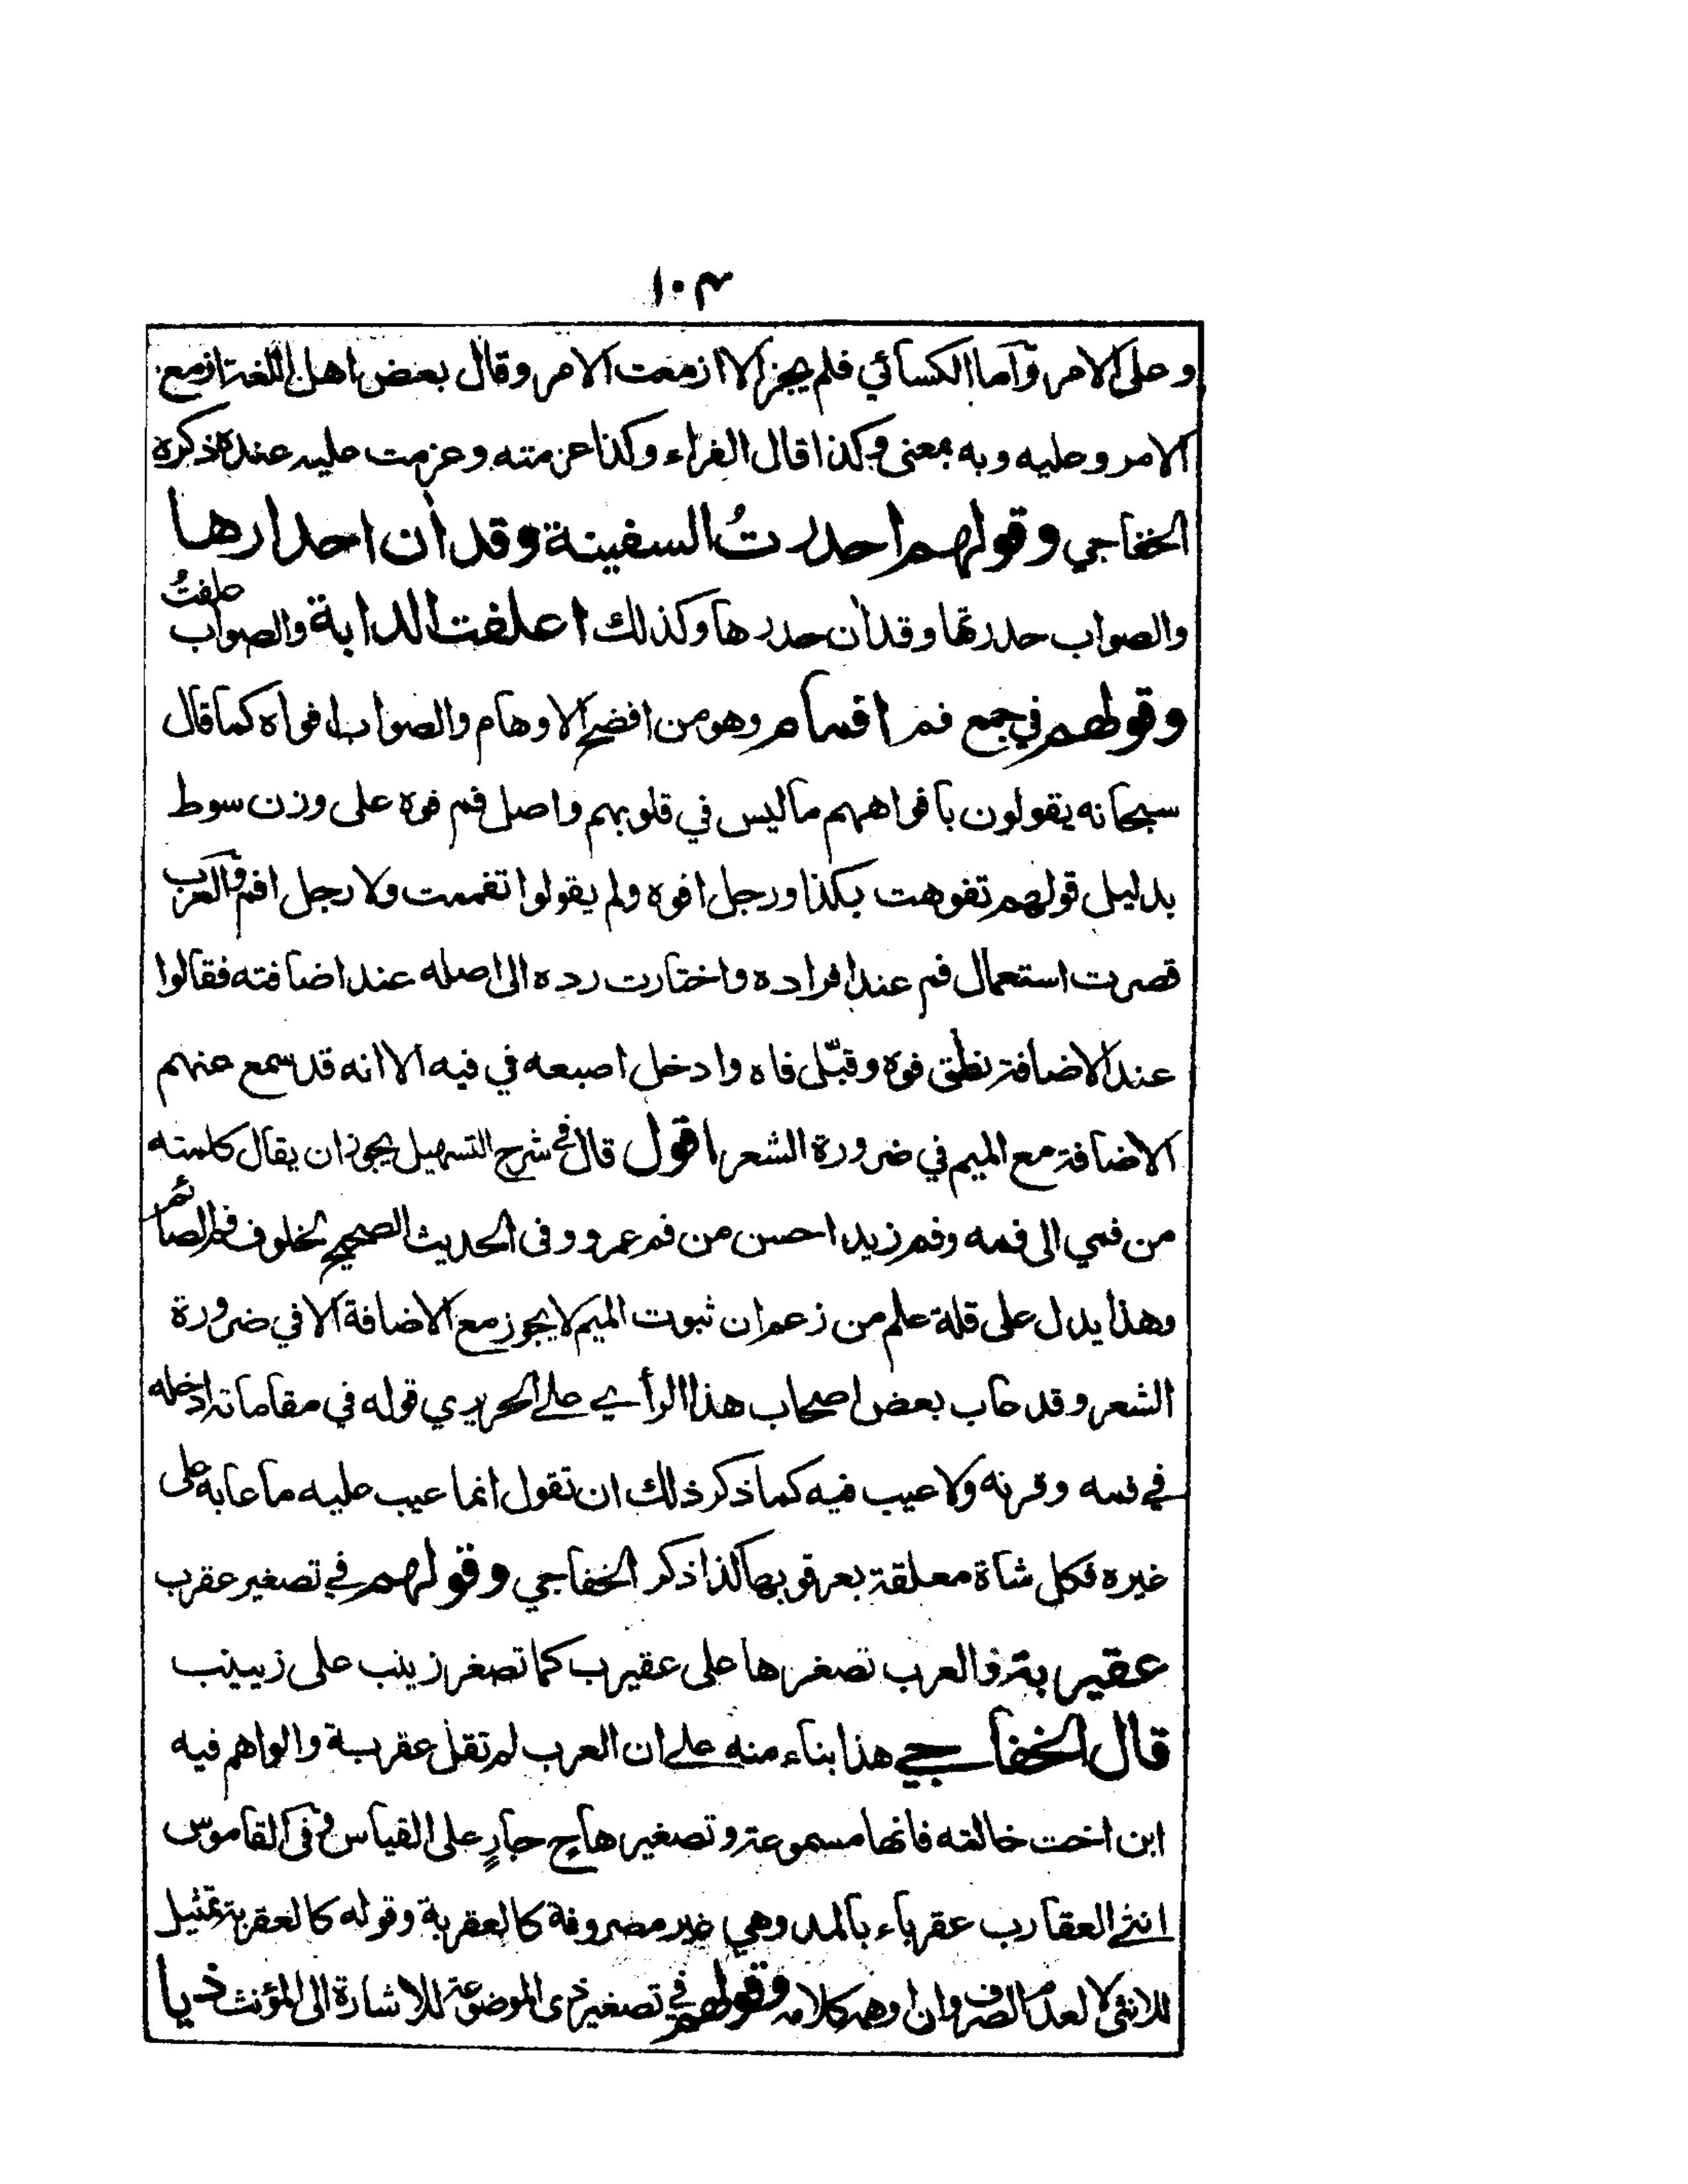 ١٠٣
وعلى الامر وأما الكسائي فلم يجز الا ازمعت الامر وقال بعض اهل اللغة ازمع
الامر وعليه وبه بمعنى وكذا قال الفراء وكذا عزمته وعزمت عليه عنده ذكره
الخفاجي وقولهم احدرتُ السفينة وقد ان احدارها
والصواب حدرتها وقد ان حدرها وكذلك اعلفت الدابة والصواب علفتُ
وقولهم في جمع فم افمام وهو من افضح الاوهام والصواب افواه كما قال
سبحانه يقولون بافواههم ماليس في قلوبهم واصل فم فوه على وزن سوط
بدليل قولهم تفوهت بكذا ورجل افوه ولم يقولوا تفممت ولا رجل افم والعرب
قصرت استعمال فم عند افراده واختارت رده الى اصله عند اضافته فقالوا
عند الاضافة نطق فوه وقبّل فاه وادخل اصبعه في فيه الا انه قد سمع عنهم
الاضافة مع الميم في ضرورة الشعر اقول قال في شرح التسهيل يجوز ان يقال كلمته
من فمي الى فمه وفم زيد احسن من فم عمرو وفى الحديث الصحيح لخلوف فم الصائم
وهذا يدل على قلة علم من زعم ان ثبوت الميم لا يجوز مع الاضافة الا في ضرورة
الشعر وقد عاب بعض اصحاب هذا الرأي على الحريري قوله في مقاماته ادخله
في فمه وقرنه ولا عيب فيه كما ذكر ذلك ان تقول انما عيب عليه ما عابه على
غيره فكل شاة معلقة بعرقوبها كذا ذكر الخفاجي وقولهم في تصغير عقرب
عقيربة والعرب تصغرها على عقيرب كما تصغر زينب على زيينب
قال الخفاجي هذا بناء منه على ان العرب لم تقل عقربة والواهم فيه
ابن اخت خالته فانها مسموعة وتصغيرها ح جارٍ على القياس وفى القاموس
انثى العقارب عقرباء بالمد وهي غير مصروفة كالعقربة وقوله كالعقربة تمثيل
للانثى لا لعدم الصرف وان اوهم كلامه وقولهم في تصغير ذى الموضوعة للاشارة الى المؤنث ذيا